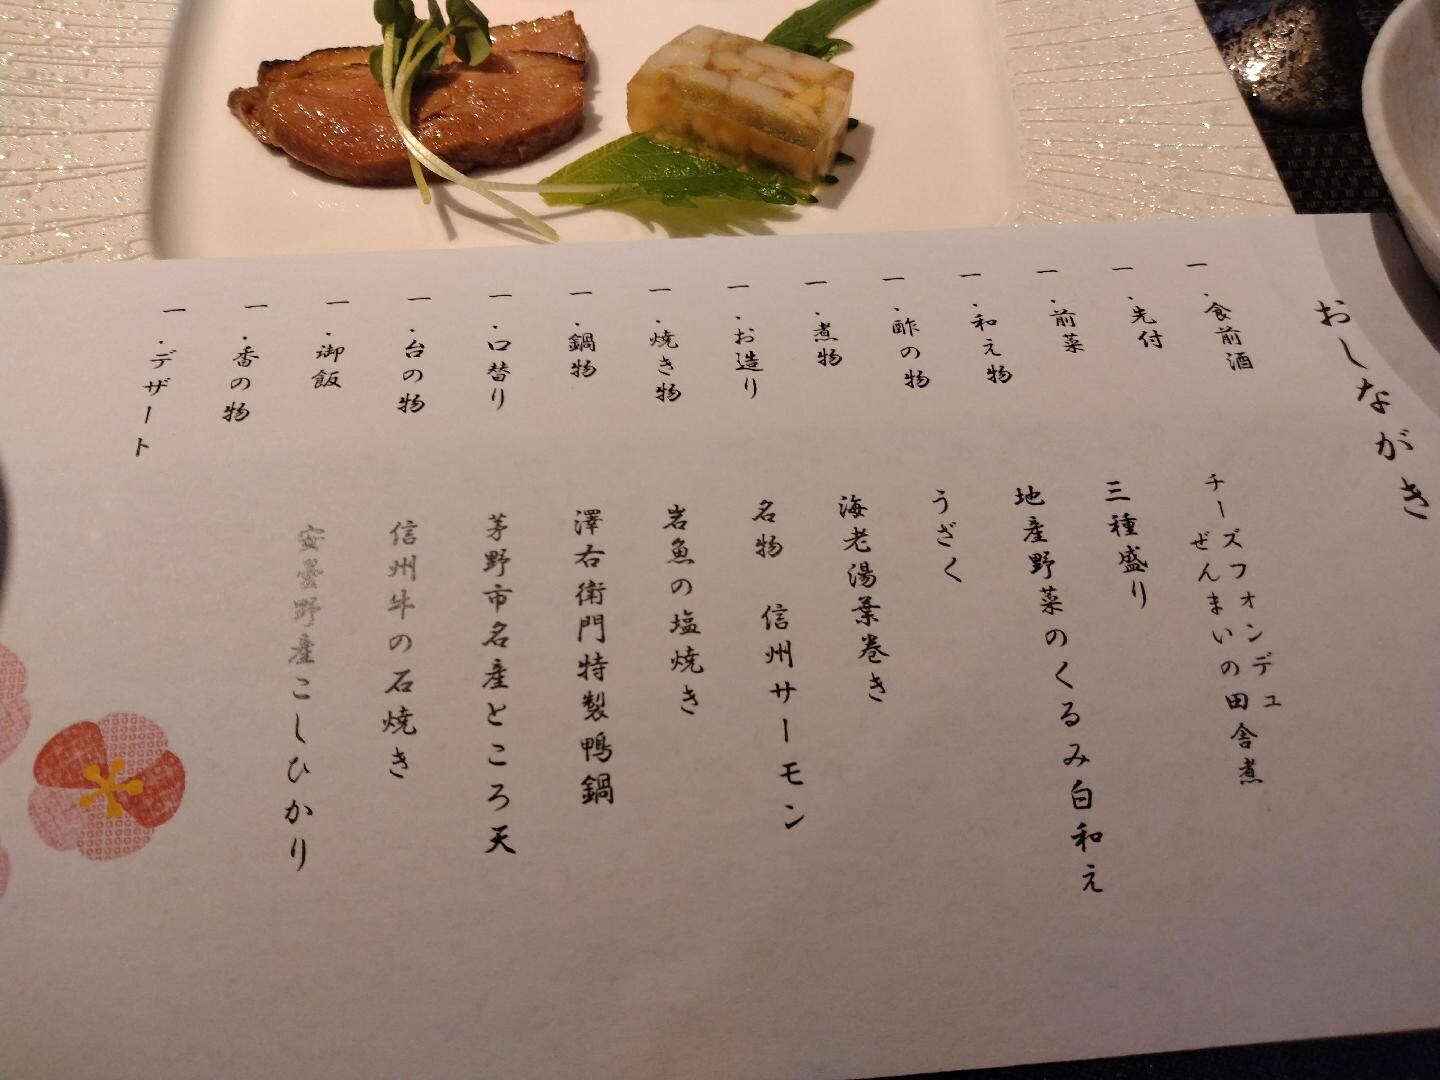 おしながき
一．食前酒
一．先付 チーズフォンデュ
ぜんまいの田舎煮
一．前菜 三種盛り
一．和え物 地産野菜のくるみ白和え
一．酢の物 うざく
一．煮物 海老湯葉巻き
一．お造り 名物 信州サーモン
一．焼き物 岩魚の塩焼き
一．鍋物 澤右衛門特製鴨鍋
一．口替り 茅野市名産ところ天
一．台の物 信州牛の石焼き
一．御飯 安曇野産こしひかり
一．香の物
一．デザート